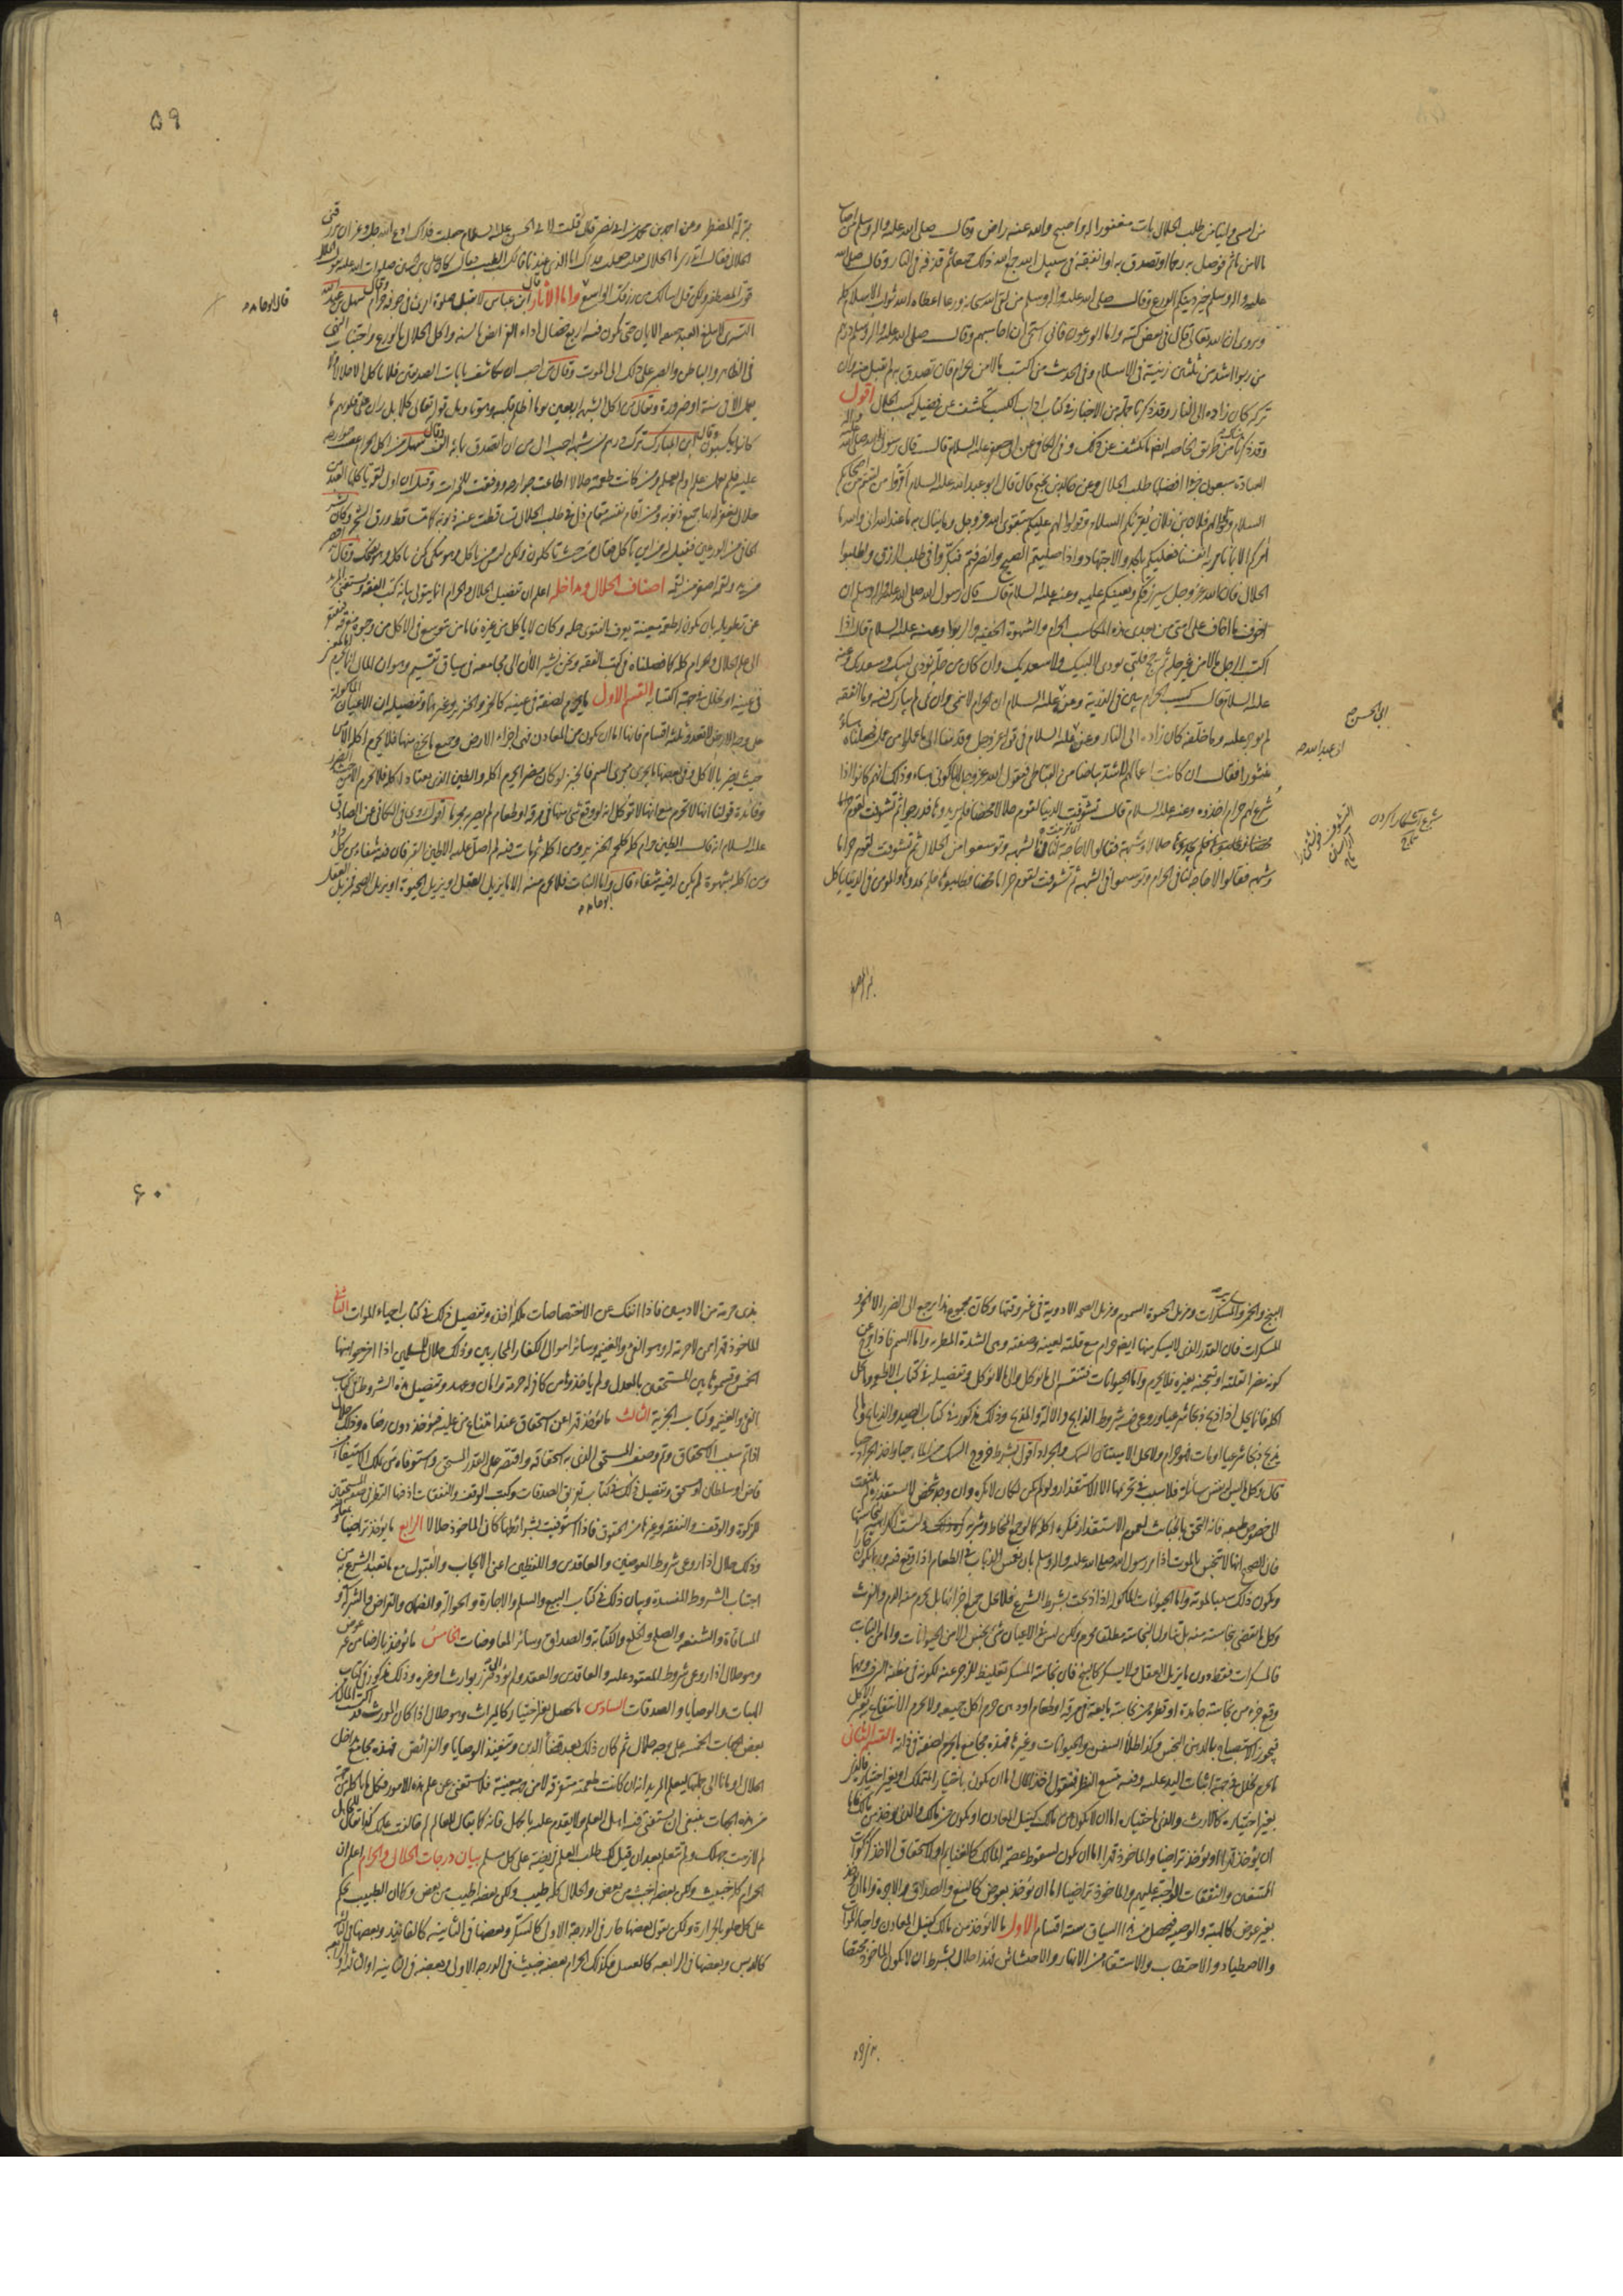 من امسى وانيا من طلب الحلال بات مغفورا له واصبح والله عنه راض وقال صلى الله عليه واله وسلم من اصاب
مالا من مأثم فوصل به رحما او تصدق به او انفقه في سبيل الله جمع الله ذلك جميعا ثم قذفه في النار وقال صلى الله
عليه واله وسلم خير دينكم الورع وقال صلى الله عليه واله وسلم من لقى الله سبحانه ورعا اعطاه الله ثواب الاسلام كله
ويروى ان الله تعالى قال في بعض كتبه واما الورعون فانى استحيي ان احاسبهم وقال صلى الله عليه واله وسلم درهم
من ربوا اشد من ثلثين زنية في الاسلام وفي الحديث من اكتسب مالا من حرام فان تصدق به لم يقبل منه وان
تركه كان زاده الى النار وقد ذكرنا جملة من الاخبار في كتاب اداب الكسب تكشف عن فضيلة كسب الحلال اقول
وقد ذكرنا من طريق الخاصة ايضا ما يكشف عن ذلك وفي الكافي عن ابي جعفر عليه السلام قال قال رسول الله صلى الله
العبادة سبعون جزءا افضلها طلب الحلال وعن خالد بن نجيح قال قال ابو عبد الله عليه السلام اقرؤا من لقيتم من اصحابكم
السلام وقولوا لهم فلان بن فلان يقرئكم السلام وقولوا لهم عليكم بتقوى الله عز وجل وما ينال به ما عند الله انى والله ما
آمركم الا بما نأمر به انفسنا فعليكم بالجد والاجتهاد واذا صليتم الصبح وانصرفتم فبكروا في طلب الرزق واطلبوا
الحلال فان الله عز وجل سيرزقكم ويعينكم عليه وعنه عليه السلام قال قال رسول الله صلى الله عليه واله وسلم ان
اخوف ما اخاف على امتى من بعدى هذه المكاسب الحرام والشهوة الخفية والربوا وعنه عليه السلام قال اذا
اكتسب الرجل مالا من غير حله ثم حج فلبى نودى لا لبيك ولا سعديك وان كان من حله نودى لبيك وسعديك وعنه
عليه السلام قال كسب الحرام يبين في الذرية وعن عليه السلام ان الحرام لا ينمى وان نمى لم يبارك فيه وما انفقه
لم يوجر عليه وما خلفه كان زاده الى النار وعن عليه السلام في قول الله عز وجل وقدمنا الى ما عملوا من عمل فجعلناه هباء
منثورا فقال ان كانت اعمالهم لاشد بياضا من القباطى فيقول الله عز وجل لها كونى هباء وذلك انهم كانوا اذا
شرع لهم حرام اخذوه وعنه عليه السلام قال تشوفت الدنيا لقوم حلالا محضا فلم يريدوها فدرجوا ثم تشوفت لقوم
حلالا وشبهة فقالوا لا حاجة لنا في الشبهة وتوسعوا من الحلال ثم تشوفت لقوم حراما
وشبهة فقالوا لا حاجة لنا في الحرام وتوسعوا في الشبهة ثم تشوفت لقوم حراما محضا فيطلبونها فلا يجدونها والمومن في الدنيا ياكل
ابي الحسن ع
ابي عبد الله
۵۹
بمنزلة المضطر وعن احمد بن محمد بن ابي نصر قال قلت لابي الحسن عليه السلام جعلت فداك ادع الله جل وعز ان يرزقنى
الحلال فقال اتدرى ما الحلال قلت جعلت فداك اما الذى عندنا فالكسب الطيب فقال كان على بن الحسين صلوات الله عليه يقول الحلال
قوت المصطفين ولكن قل اسالك من رزقك الواسع واما الآثار قال ابن عباس لا يقبل صلوة امرئ في جوفه حرام وقال سهل بن عبد الله
التسترى لا يبلغ العبد حقيقة الايمان حتى يكون فيه اربع خصال اداء الفرائض بالسنة واكل الحلال بالورع واجتناب النهى
في الظاهر والباطن والصبر على ذلك الى الموت وقال من احب ان يكاشف بايات الصديقين فلا ياكل الا حلالا ولا
يعمل الا في سنة او ضرورة ويقال من اكل الشبهة اربعين يوما اظلم قلبه وهو تاويل قوله تعالى كلا بل ران على قلوبهم ما
كانوا يكسبون وقال ابن المبارك ترك درهم من شبهة احب الى من ان اتصدق بمائة الف وقال سهل من اكل الحرام عصت جوارحه
علم ام لم يعلم ومن كانت طعمته حلالا اطاعت جوارحه ووفقت للخيرات وقيل ان اول لقمة ياكلها العبد من
حلال يغفر له بها جميع ذنوبه ومن اقام نفسه مقام ذل في طلب الحلال تساقطت عنه ذنوبه كما تساقط ورق الشجر وكان بشر
الحافى من الورعين فقيل له من اين تاكل فقال من حيث تاكلون ولكن ليس من ياكل وهو يبكى كمن ياكل وهو يضحك وقال
اصناف الحلال ومداخله اعلم ان تفصيل الحلال والحرام انما يتولى بيانه كتب الفقه ويستغنى المريد
عن تطويله بان يكون له طعمة معينة يعرف بالفتوى حلها وكان لا ياكل من غيره فاما من يتوسع في الاكل من وجوه متفرقة فيفتقر
الى علم الحلال والحرام كله كما فصلناه في كتب الفقه ونحن نشير الآن الى مجامعه في سياق تقسيم وهو ان المال انما يحرم
في عينه او لخلل في جهة اكتسابه القسم الاول ما يحرم لصفة في عينه كالخمر والخنزير وغيرهما وتفصيله ان الاعيان الماكولة
على وجه الارض لا تعدو ثلثة اقسام فانها اما ان يكون من المعادن فهى اجزاء الارض وجميع ما يخرج منها فلا يحرم اكله الا من
حيث يضر بالاكل وفي بعضها ما يجرى مجرى السم فالخبز لو كان مضرا لحرم اكله والطين الذى يعتاد اكله فلا يحرم الا من حيث الضرر
وفائدة قولنا انها لا تحرم مع انها لا توكل انه لو وقع شئ منها في مرقة او طعام لم يصر به محرما اقول وروى في الكافى عن الصادق
عليه السلام انه قال الطين حرام كله كلحم الخنزير ومن اكله ثم مات فيه لم اصل عليه الا طين القبر فان فيه شفاء من كل داء
ومن اكله بشهوة لم يكن له فيه شفاء قال واما النبات فلا يحرم منه الا ما يزيل العقل او يزيل الحيوة او يزيل الصحة فمزيل العقل
ابو حامد
قال ابو حامد
البنج والخمر والمسكرات ومزيل الحيوة السموم ومزيل الصحة الادوية في غير وقتها وكان مجموع هذا يرجع الى الضرر الا الخمر و
المسكرات فان القدر الذى لا يسكر منها ايضا حرام مع قلته لعينه ولصفته وهى الشدة المطربة واما السم فاذا خرج عن
كونه مضرا لقلته او لعجنه بغيره فلا يحرم واما الحيوانات فتنقسم الى ما يوكل والى ما لا يوكل وتفصيله في كتاب الاطعمة وما يحل
اكله فانما يحل اذا ذبح ذبحا شرعيا وروعى فيه شروط الذابح والآلة والمذبح وذلك مذكور في كتاب الصيد والذبايح وما لم
يذبح ذبحا شرعيا او مات فهو حرام ولا يحل الا ميتتان السمك والجراد اقول بشرط خروج السمك من الماء حيا واخذ الجراد حيا
قال وكل ما ليس له نفس سائلة فلا سبب في تحريمها الا الاستقذار ولو لم يكن لكان لا يكره وان وجد شخص لا يستقذره لم يلتفت
الى خصوص طبعه فانه التحق بالخبائث لعموم الاستقذار فيكره اكله كما لو جمع المخاط وشربه كره ذلك وليست الكراهية لنجاستها
فان الصحيح انها لا تنجس بالموت اذ امر رسول الله صلى الله عليه واله وسلم بان يمقل الذباب في الطعام اذا وقع فيه وربما يكون حارا
ويكون ذلك سببا لموته واما الحيوانات الماكولة اذا ذبحت بشرط الشرع فلا يحل جميع اجزائها بل يحرم منه الدم والفرث
وكل ما يقضى بنجاسته منه بل تناول النجاسة مطلقا محرم ولكن ليس في الاعيان شئ نجس الا من الحيوانات واما من النبات
فالمسكرات فقط دون ما يزيل العقل ولا يسكر كالبنج فان نجاسة المسكر تغليظ للزجر عنه لكونه في مظنة التشوف ومهما
وقع جزء من نجاسة جامدة او قطرة من نجاسة مايعة في مرقة او طعام او دهن حرم اكل جميعه ولا يحرم الانتفاع به لغير الاكل
فيجوز الاستصباح بالدهن النجس وكذا طلاء السفن والحيوانات وغيرها فهذه مجامع ما يحرم لصفة في ذاته القسم الثانى
ما يحرم لخلل في جهة اثبات اليد عليه وفيه يتسع النظر فنقول اخذ المال اما ان يكون باختيار المتملك او بغير اختياره فالذى
بغير اختياره كالارث والذى باختياره اما ان لا يكون من مالك كنيل المعادن او يكون من مالك والذى يوخذ من مالك فاما
ان يوخذ قهرا او يوخذ تراضيا والماخوذ قهرا اما ان يكون لسقوط عصمة المالك كالغنايم او لاستحقاق الاخذ كزكوات
الممتنعين والنفقات الواجبة عليهم والماخوذ تراضيا اما ان يوخذ بعوض كالبيع والصداق والاجرة واما ان يوخذ
بغير عوض كالهبة والوصية فيحصل من هذا السياق ستة اقسام الاول ما لا يوخذ من مالك كنيل المعادن واحياء الموات
والاصطياد والاحتطاب والاستقاء من الانهار والاحتشاش فهذا حلال بشرط ان لا يكون الماخوذ مختصا
۶۰
بذى حرمة من الادميين فاذا انفك عن الاختصاصات ملكه آخذه وتفصيل ذلك في كتاب احياء الموات الثانى
الماخوذ قهرا ممن لا حرمة له وهو الفئ والغنيمة وسائر اموال الكفار المحاربين وذلك حلال للمسلمين اذا اخرجوا منها
الخمس وقسموها بين المستحقين بالعدل ولم ياخذوها من كافر له حرمة وامان وعهد وتفصيل هذه الشروط في كتاب
الفئ والغنيمة وكتاب الجزية الثالث ما يوخذ قهرا عن استحقاق عند امتناع من عليه فيوخذ دون رضاه وذلك حلال
اذا تم سبب الاستحقاق وتم وصف المستحق الذى به استحقاقه واقتصر على القدر المستحق واستوفاه ممن يملك الاستيفاء من
قاض او سلطان او مستحق وتفصيل ذلك في كتاب تفريق الصدقات وكتب الوقف والنفقات اذ فيها النظر في صفة المستحقين
للزكوة والوقف والنفقة وغيرها من الحقوق فاذا استوفيت شرائطها كان الماخوذ حلالا الرابع ما يوخذ تراضيا بمعاوضة
وذلك حلال اذا روعى شروط العوضين والعاقدين واللفظين اعنى الايجاب والقبول مع ما تعبد الشرع به من
اجتناب الشروط المفسدة وبيان ذلك في كتاب البيع والسلم والاجارة والحوالة والضمان والقراض والشركة و
المساقاة والشفعة والصلح والخلع والكتابة والصداق وسائر المعاوضات الخامس ما يوخذ بالرضا من غير عوض
وهو حلال اذا روعى شروط المعقود عليه والعاقدين والعقد ولم يؤد الى ضرر بوارث او غيره وذلك مذكور في كتاب
الهبات والوصايا والصدقات السادس ما يحصل بغير اختيار كالميراث وهو حلال اذا كان المورث قد اكتسب المال من
بعض الجهات الخمسة على وجه حلال ثم كان ذلك بعد قضاء الدين وتنفيذ الوصايا والفرائض فهذه مجامع مداخل
الحلال اومانا الى جملتها ليعلم المريد انه ان كانت طعمته متفرقة لا من جهة معينة فلا يستغنى عن علم هذه الامور فكل ما ياكله من جهة
من هذه الجهات ينبغى ان يستفتى فيه اهل العلم ولا يقدم عليه بالجهل فانه كما يقال للعالم لم خالفت علمك كذا يقال للجاهل
لم لازمت جهلك ولم تتعلم بعد ان قيل لك طلب العلم فريضة على كل مسلم بيان درجات الحلال والحرام اعلم ان
الحرام كله خبيث ولكن بعضه اخبث من بعض والحلال كله طيب ولكن بعضه اطيب من بعض وكما ان الطبيب يحكم
على كل حلو بالحرارة ولكن يقول بعضها حار في الدرجة الاولى كالسكر وبعضها في الثانية كالفانيد وبعضها في الثالثة
كالدبس وبعضها في الرابعة كالعسل فكذلك الحرام بعضه خبيث في الدرجة الاولى وبعضه في الثانية او الثالثة او الرابعة